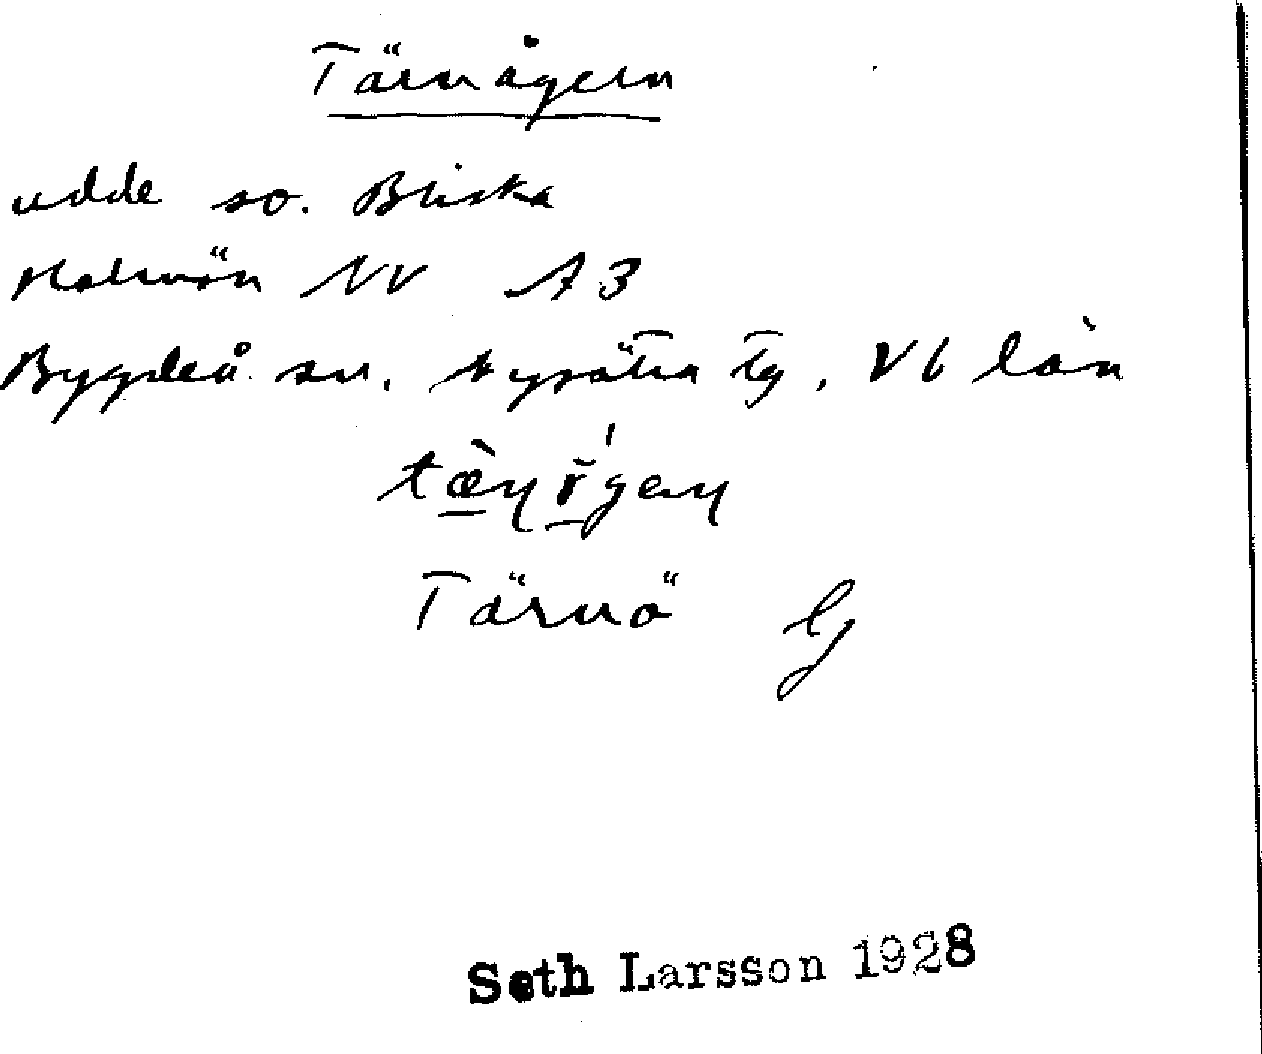 Tärnågern
udde so. Bliska
Holmön NV A 3
Bygdeå sn. Nysätra tg. Vb län
Tärnö G
Seth Larsson 1928